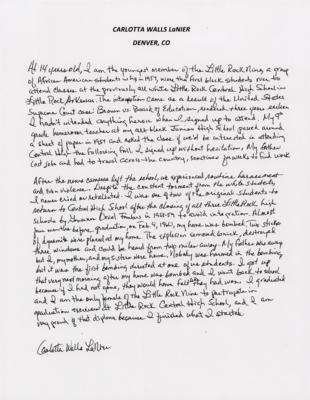 CARLOTTA WALLS LaNIER
DENVER, CO
At 14 years old, I am the youngest member of the Little Rock Nine, a group
of African American students who in 1957, were the first black students ever to
attend classes at the previously all white Little Rock Central High School in
Little Rock Arkansas. The integration came as a result of the United States
Supreme Court case: Brown vs Board of Education, rendered three years earlier.
I hadn't intended anything heroic when I signed up to attend. My 9th
grade homeroom teacher at my all-black Junior High School passed around
a sheet of paper in 1957 and asked the class if we'd be interested in attending
Central High the following Fall. I signed up without hesitation. My father
lost jobs and had to travel across the country, sometimes for weeks to find work
After the news cameras left the school, we experienced routine harassment
and even violence. Despite the constant torment from the white students,
I never cried or retaliated. I was one of two of the original students to
return to Central High School after the closing of all three Little Rock high
schools by Governor Orval Faubus in 1958-59 to avoid integration. Almost
four months before graduation, on Feb 9, 1960, my home was bombed. Two sticks
of dynamite were placed at my home. The explosion removed brick, destroyed
three windows and could be heard from two miles away. My father was away
but I, my mother, and my sisters were home. Nobody was harmed in the bombing,
but it was the first bombing directed at one of us students. I got up
that very next morning after my home was bombed and I went back to school
because if I had not gone, they would have felt they had won. I graduated
and I am the only female of the Little Rock Nine to participate in
graduation exercises at Little Rock Central High School, and I am
very proud of that diploma because I finished what I started.
Carlotta Walls LaNier